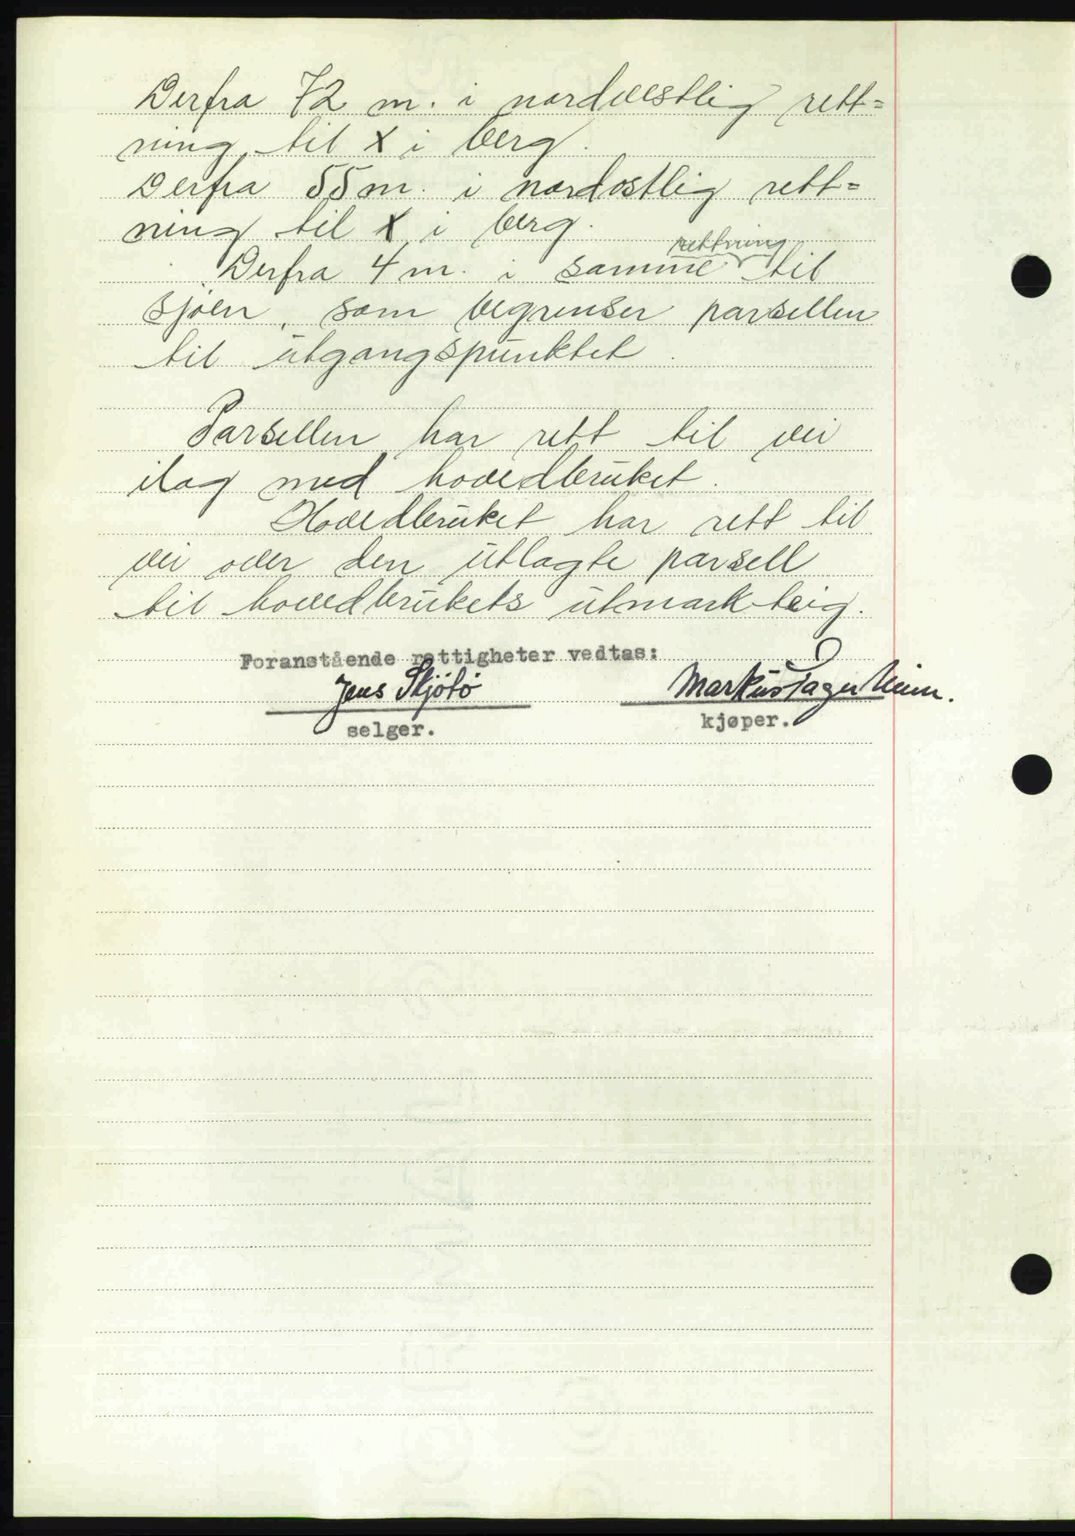 Derfra 72 m. i nordvestlig rett=
ning til X i berg.
Derfra 55 m. i nordostlig rett=
ning til X i berg.
rettning
Derfra 4 m. i samme til
sjøen, som begrenser parsellen
til utgangspunktet.
Parsellen har rett til vei
ilag med hovedbruket.
Hovedbruket har rett til
vei over den utlagte parsell
til hovedbrukets utmark-teig.
Foranstående rettigheter vedtas:
Jens Markus
selger. kjøper.